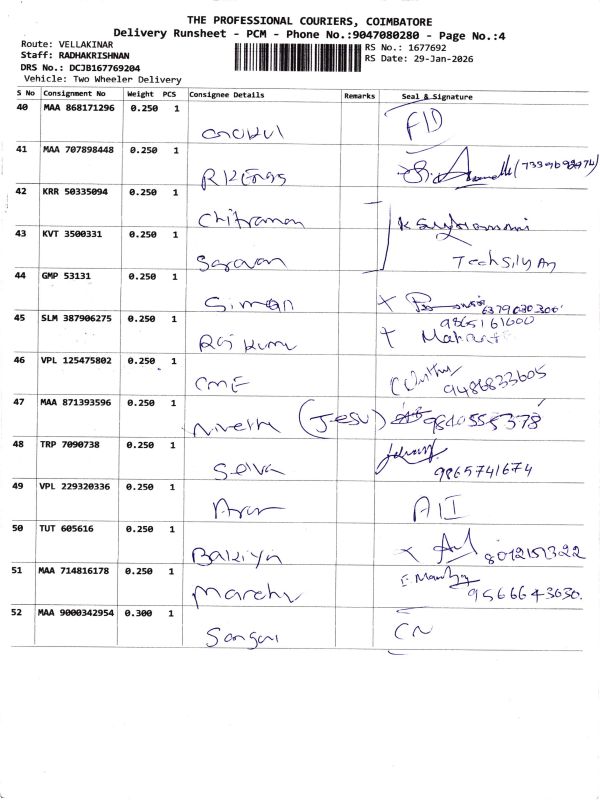 THE PROFESSIONAL COURIERS, COIMBATORE
Delivery Runsheet - PCM - Phone No.:9047080280 - Page No.:4
Route: VELLAKINAR
Staff: RADHAKRISHNAN
DRS No.: DCJB167769204
Vehicle: Two Wheeler Delivery
RS No.: 1677692
RS Date: 29-Jan-2026
S No Consignment No Weight PCS Consignee Details Remarks Seal & Signature
40 MAA 868171296 0.250 1
Gokul FID
41 MAA 707898448 0.250 1
42 KRR 50335094 0.250 1
Chitraman
43 KVT 3500331 0.250 1
Saravan
44 GMP 53131 0.250 1
Simon 6379030300
45 SLM 387906275 0.250 1
Raj kumar 9865161600
46 VPL 125475802 0.250 1
CME 9486833605
47 MAA 871393596 0.250 1
Nivetha (Jesu) 9840555378
48 TRP 7090738 0.250 1
Selva 9865741674
49 VPL 229320336 0.250 1
50 TUT 605616 0.250 1
Bakiya 8012157322
51 MAA 714816178 0.250 1
9566643030
52 MAA 9000342954 0.300 1
CN